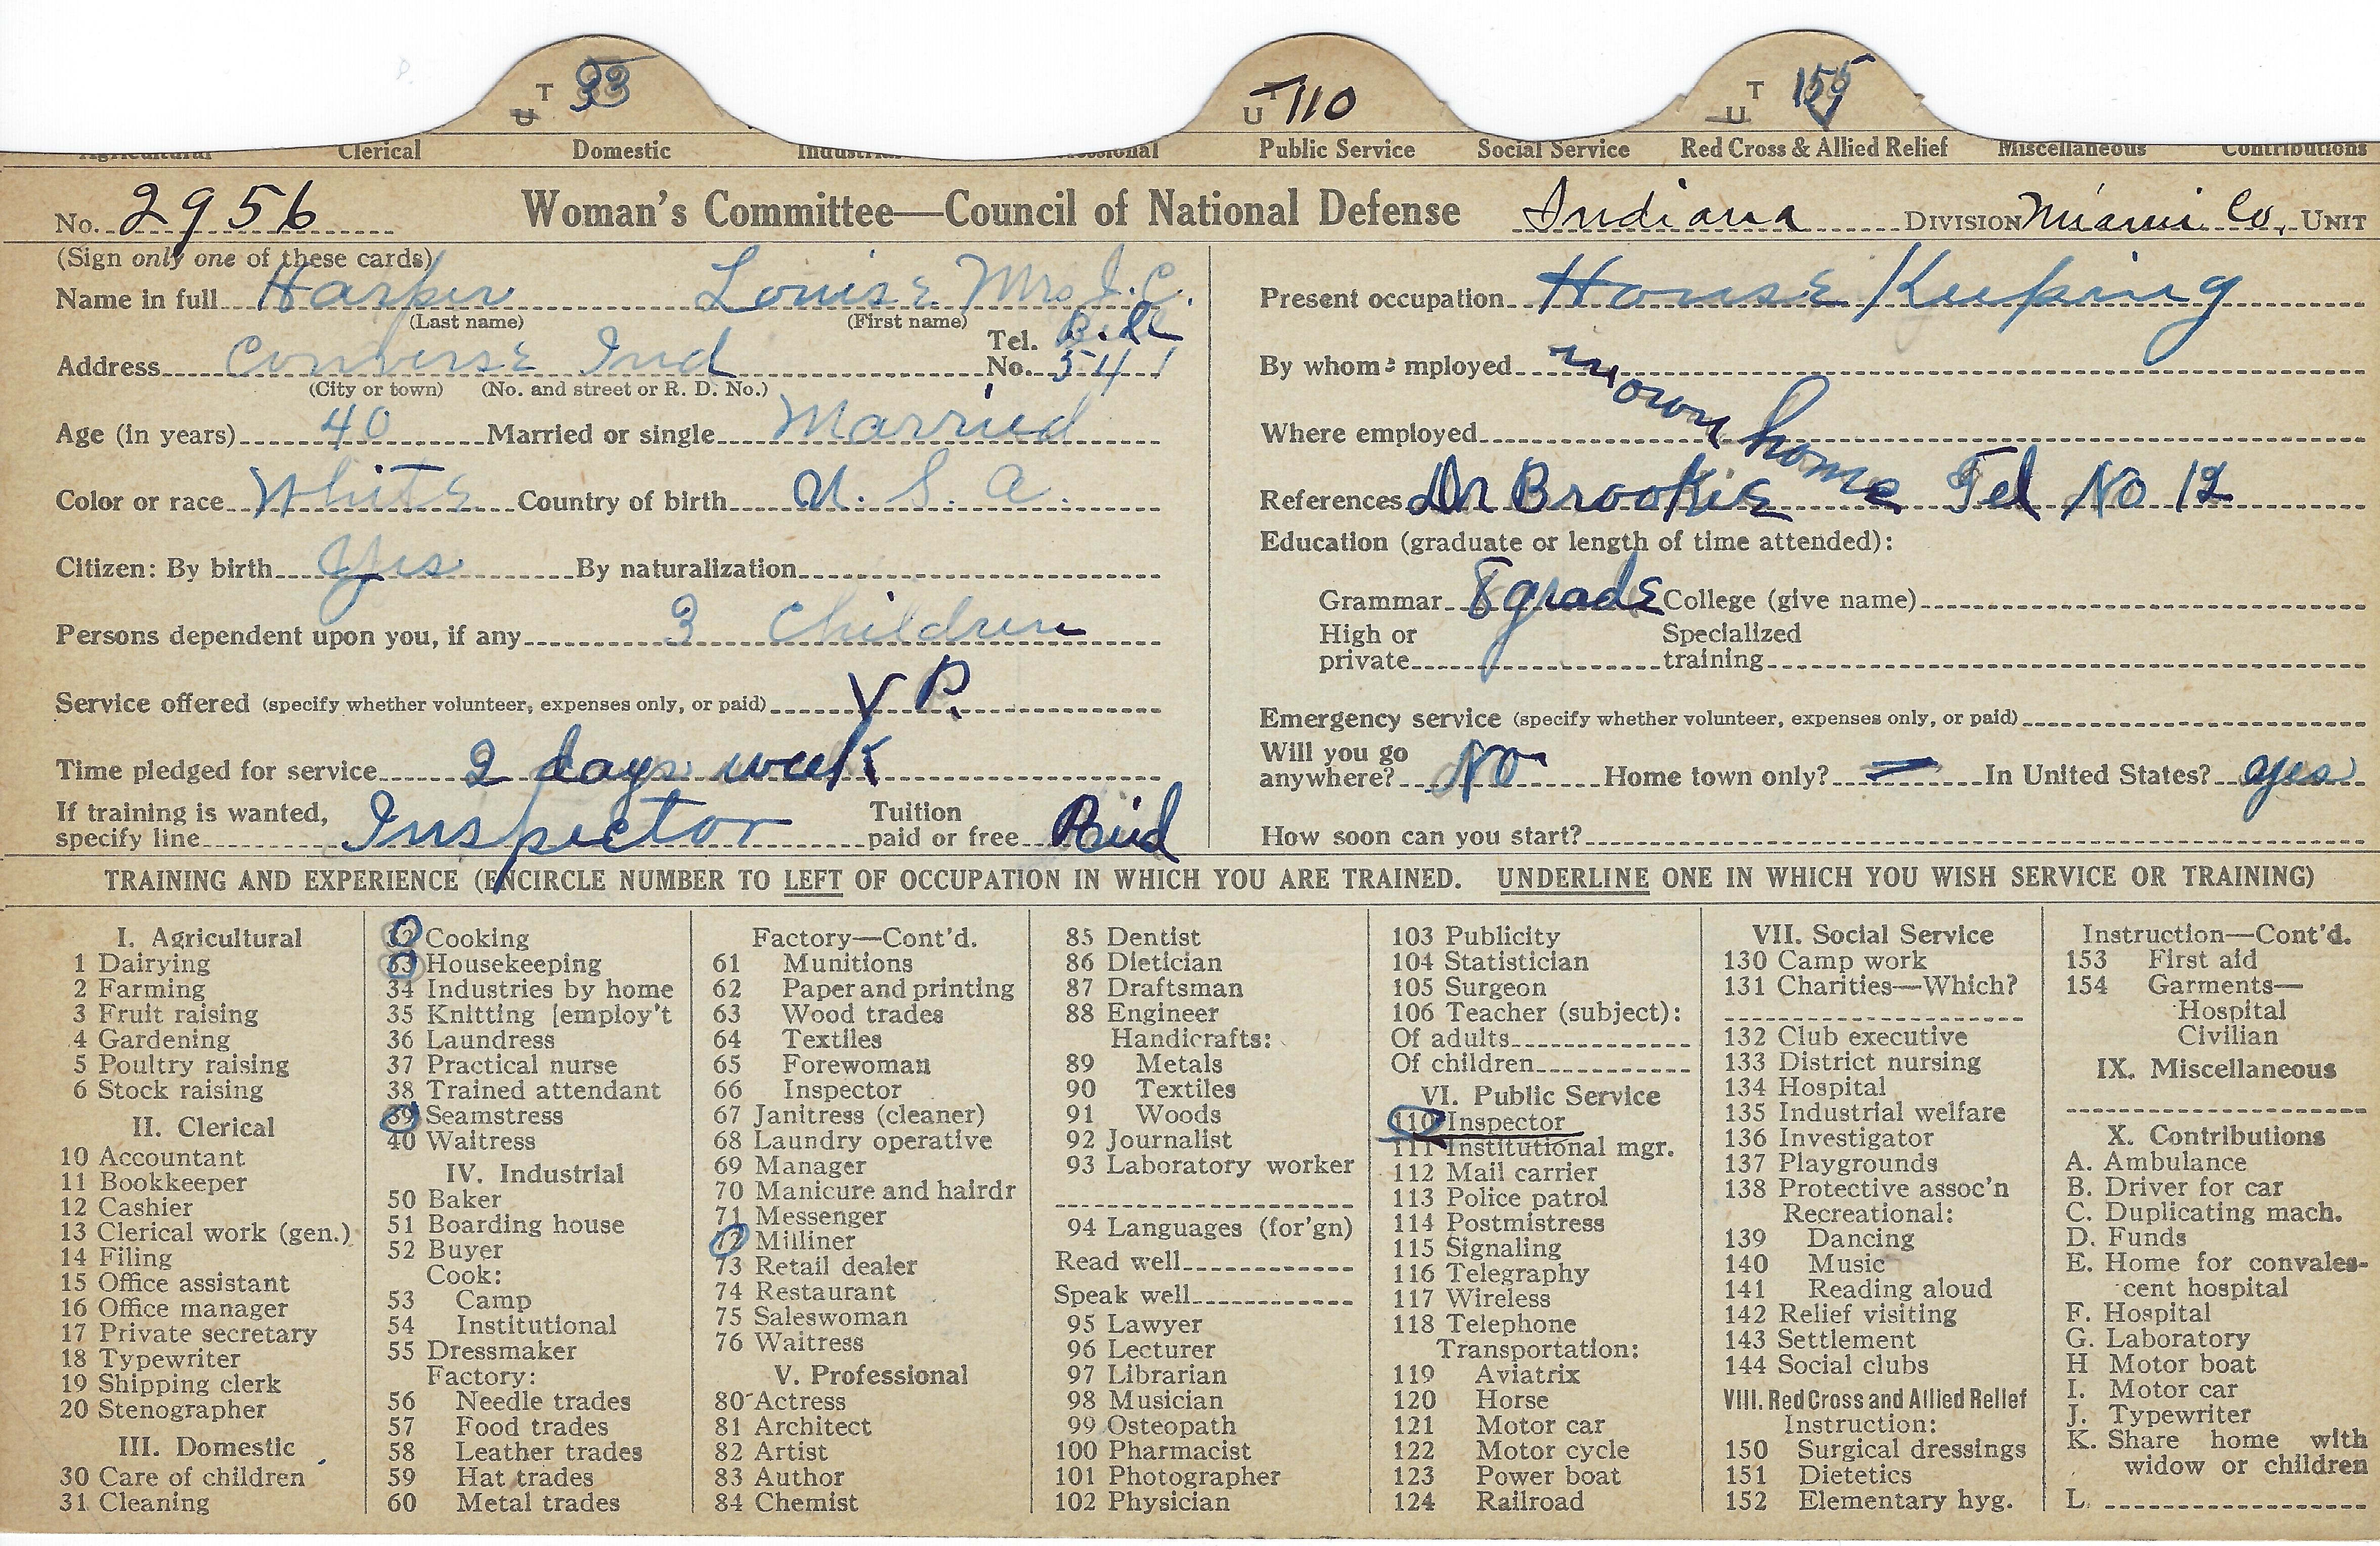 T 33
U
T 110
U
T 155
U
Agricultural Clerical Domestic Industrial Professional Public Service Social Service Red Cross & Allied Relief Miscellaneous Contributions
No. 2956 Woman's Committee—Council of National Defense Indiana DIVISION Miami Co. UNIT
(Sign only one of these cards)
Name in full Harper Louise Mrs J. C.
(Last name) (First name)
Address Converse Ind Tel. No. Bell 541
(City or town) (No. and street or R. D. No.)
Age (in years) 40 Married or single Married
Color or race White Country of birth U. S. A.
Citizen: By birth Yes By naturalization
Persons dependent upon you, if any 3 Children
Service offered (specify whether volunteer, expenses only, or paid) V P.
Time pledged for service 2 days week
If training is wanted, specify line Inspector Tuition paid or free Paid
Present occupation House Keeping
By whom employed in own home
Where employed
References Dr Brookie Tel No 12
Education (graduate or length of time attended):
Grammar 8 grade College (give name)
High or private Specialized training
Emergency service (specify whether volunteer, expenses only, or paid)
Will you go anywhere? No Home town only? — In United States? yes
How soon can you start?
TRAINING AND EXPERIENCE (ENCIRCLE NUMBER TO LEFT OF OCCUPATION IN WHICH YOU ARE TRAINED. UNDERLINE ONE IN WHICH YOU WISH SERVICE OR TRAINING)
I. Agricultural
1 Dairying
2 Farming
3 Fruit raising
4 Gardening
5 Poultry raising
6 Stock raising
II. Clerical
10 Accountant
11 Bookkeeper
12 Cashier
13 Clerical work (gen.)
14 Filing
15 Office assistant
16 Office manager
17 Private secretary
18 Typewriter
19 Shipping clerk
20 Stenographer
III. Domestic
30 Care of children
31 Cleaning
32 Cooking
33 Housekeeping
34 Industries by home
35 Knitting [employ't
36 Laundress
37 Practical nurse
38 Trained attendant
39 Seamstress
40 Waitress
IV. Industrial
50 Baker
51 Boarding house
52 Buyer
Cook:
53 Camp
54 Institutional
55 Dressmaker
Factory:
56 Needle trades
57 Food trades
58 Leather trades
59 Hat trades
60 Metal trades
Factory—Cont'd.
61 Munitions
62 Paper and printing
63 Wood trades
64 Textiles
65 Forewoman
66 Inspector
67 Janitress (cleaner)
68 Laundry operative
69 Manager
70 Manicure and hairdr
71 Messenger
72 Milliner
73 Retail dealer
74 Restaurant
75 Saleswoman
76 Waitress
V. Professional
80 Actress
81 Architect
82 Artist
83 Author
84 Chemist
85 Dentist
86 Dietician
87 Draftsman
88 Engineer
Handicrafts:
89 Metals
90 Textiles
91 Woods
92 Journalist
93 Laboratory worker
94 Languages (for'gn)
Read well
Speak well
95 Lawyer
96 Lecturer
97 Librarian
98 Musician
99 Osteopath
100 Pharmacist
101 Photographer
102 Physician
103 Publicity
104 Statistician
105 Surgeon
106 Teacher (subject):
Of adults
Of children
VI. Public Service
110 Inspector
111 Institutional mgr.
112 Mail carrier
113 Police patrol
114 Postmistress
115 Signaling
116 Telegraphy
117 Wireless
118 Telephone
Transportation:
119 Aviatrix
120 Horse
121 Motor car
122 Motor cycle
123 Power boat
124 Railroad
VII. Social Service
130 Camp work
131 Charities—Which?
132 Club executive
133 District nursing
134 Hospital
135 Industrial welfare
136 Investigator
137 Playgrounds
138 Protective assoc'n
Recreational:
139 Dancing
140 Music
141 Reading aloud
142 Relief visiting
143 Settlement
144 Social clubs
VIII. Red Cross and Allied Relief
Instruction:
150 Surgical dressings
151 Dietetics
152 Elementary hyg.
Instruction—Cont'd.
153 First aid
154 Garments—
Hospital
Civilian
IX. Miscellaneous
X. Contributions
A. Ambulance
B. Driver for car
C. Duplicating mach.
D. Funds
E. Home for convales-
cent hospital
F. Hospital
G. Laboratory
H Motor boat
I. Motor car
J. Typewriter
K. Share home with
widow or children
L.